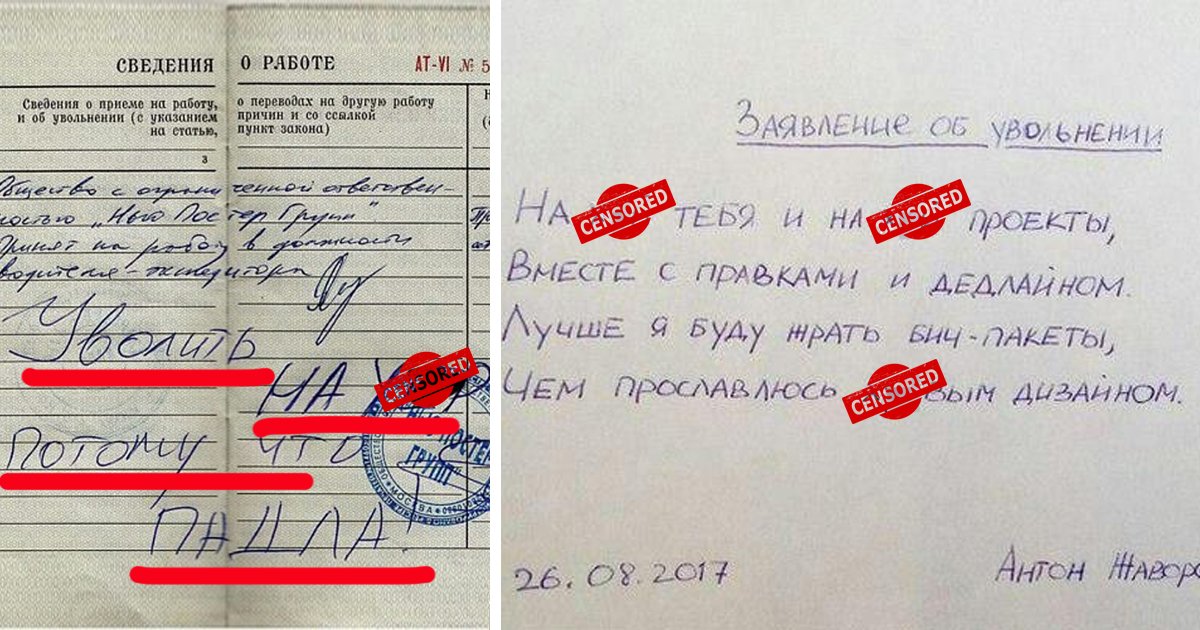 СВЕДЕНИЯ О РАБОТЕ АТ-VI № 5
Сведения о приеме на работу, о переводах на другую работу
и об увольнении (с указанием причин и со ссылкой
на статью, пункт закона)
3
Общество с ограниченной ответствен-
ностью „Нью Постер Групп"
Принят на работу в должности
водителя-экспедитора
Уволить
НА CENSORED
ПОТОМУ ЧТО
ПАДЛА!
ПОСТЕР
ГРУПП
МОСКВА
Заявление об увольнении
На CENSORED тебя и на CENSORED проекты,
Вместе с правками и дедлайном.
Лучше я буду жрать бич-пакеты,
Чем прославлюсь CENSORED вым дизайном.
26.08.2017 Антон Жаворо